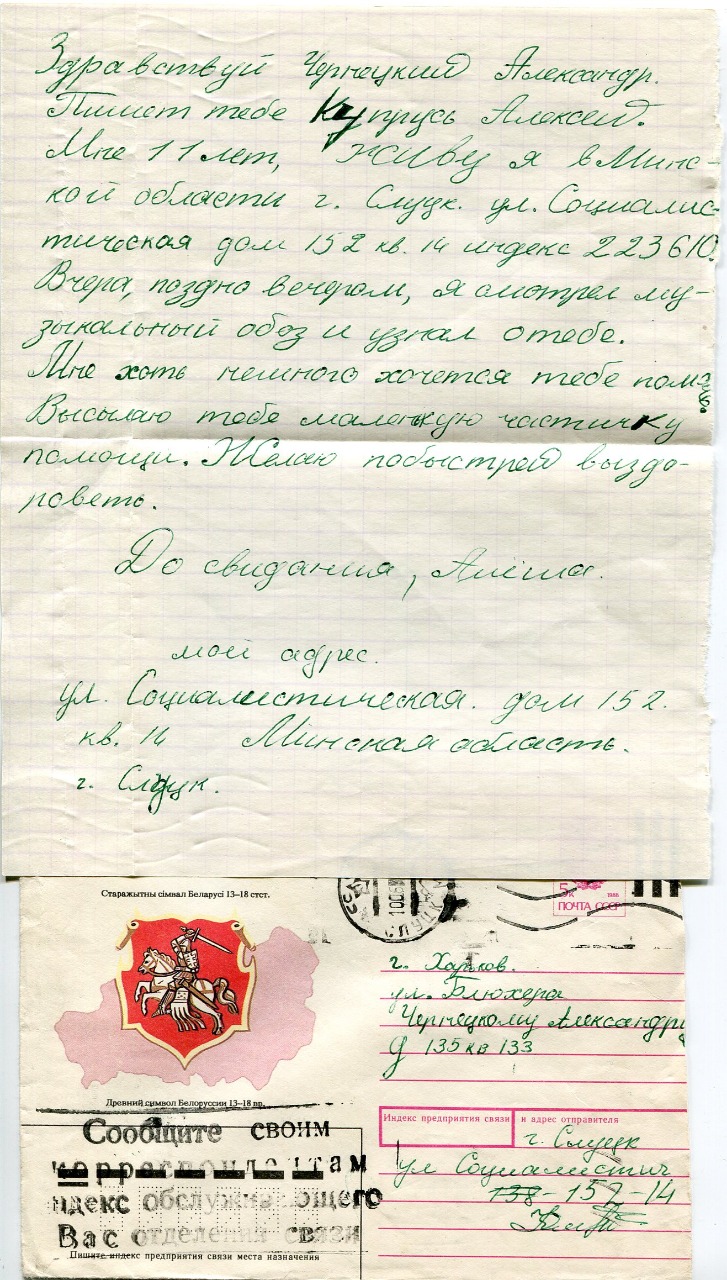 Здравствуй Чернецкий Александр.
Пишет тебе Купрусь Алексей.
Мне 11 лет, живу я в Минс-
кой области г. Слуцк. ул. Социалис-
тическая дом 152 кв. 14 индекс 223610.
Вчера, поздно вечером, я смотрел му-
зыкальный обоз и узнал о тебе.
Мне хоть немного хочется тебе
Высылаю тебе маленкую частичку
помощи. Желаю побыстрей выздо-
роветь.
До свидания, Алёша.
мой адрес.
ул. Социалистическая. дом 152.
кв. 14 Минская область.
г. Слуцк.
Старажытны сімвал Беларусі 13–18 стст.
Древний символ Белоруссии 13–18 вв.
5к 1988
ПОЧТА СССР
г. Харьков.
ул. Блюхера
Чернецкому Александру
д 135 кв 133
Индекс предприятия связи и адрес отправителя
г. Слуцк
ул Социалистич
138 - 152-14
Сообщите своим
корреспондентам
индекс обслуживающего
Вас отделения связи
Пишите индекс предприятия связи места назначения